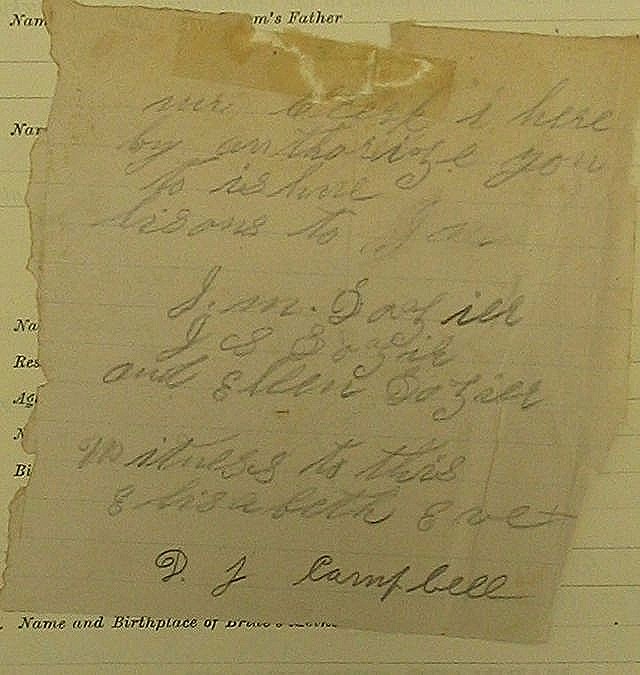 m's Father
mr Clerk i here
by authorize you
to ishue
lisons to
J. m. Dozier
J S Dozier
and Ellen Dozier
Witness to this
Elisabeth
D. J Campbell
Name and Birthplace of